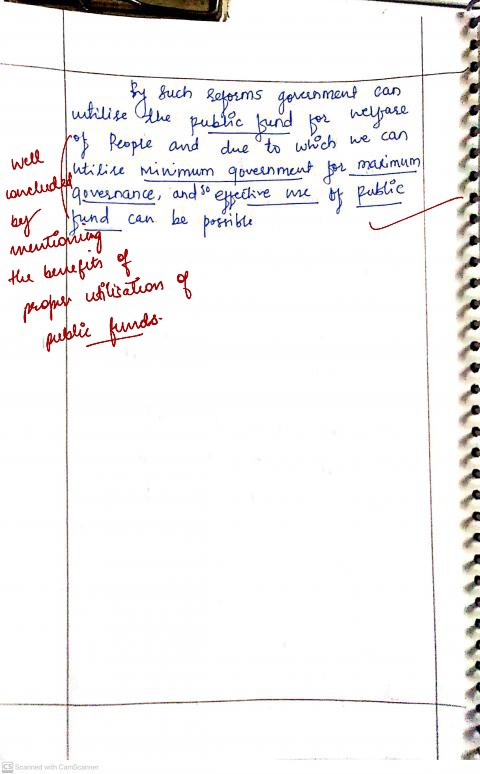 By such reforms government can
utilise the public fund for welfare
of People and due to which we can
utilise minimum government for maximum
governance, and so effective use of public
fund can be possible
well
concluded
by
mentioning
the benefits of
proper utilisation of
public funds.
CS Scanned with CamScanner